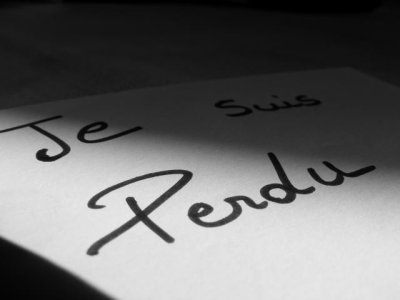 Je Suis
Perdu